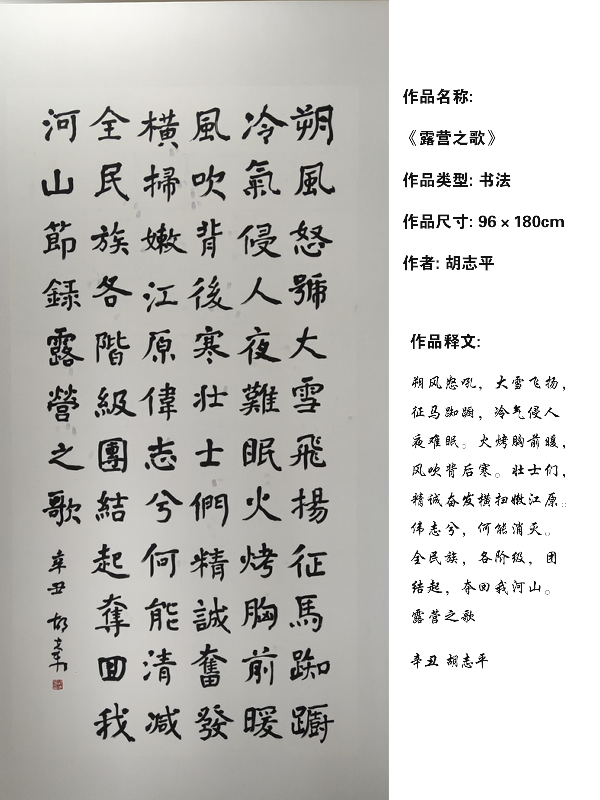 朔風怒號大雪飛揚征馬踟躕
冷氣侵人夜難眠火烤胸前暖
風吹背後寒壯士們精誠奮發
橫掃嫩江原偉志兮何能清減
全民族各階級團結起奪回我
河山節録露營之歌
辛丑 胡志平
作品名称:
《露营之歌》
作品类型: 书法
作品尺寸: 96 × 180cm
作者: 胡志平
作品释文:
朔风怒吼，大雪飞扬，
征马踟蹰，冷气侵人
夜难眠。火烤胸前暖，
风吹背后寒。壮士们，
精诚奋发横扫嫩江原。
伟志兮，何能消灭。
全民族，各阶级，团
结起，夺回我河山。
露营之歌
辛丑 胡志平